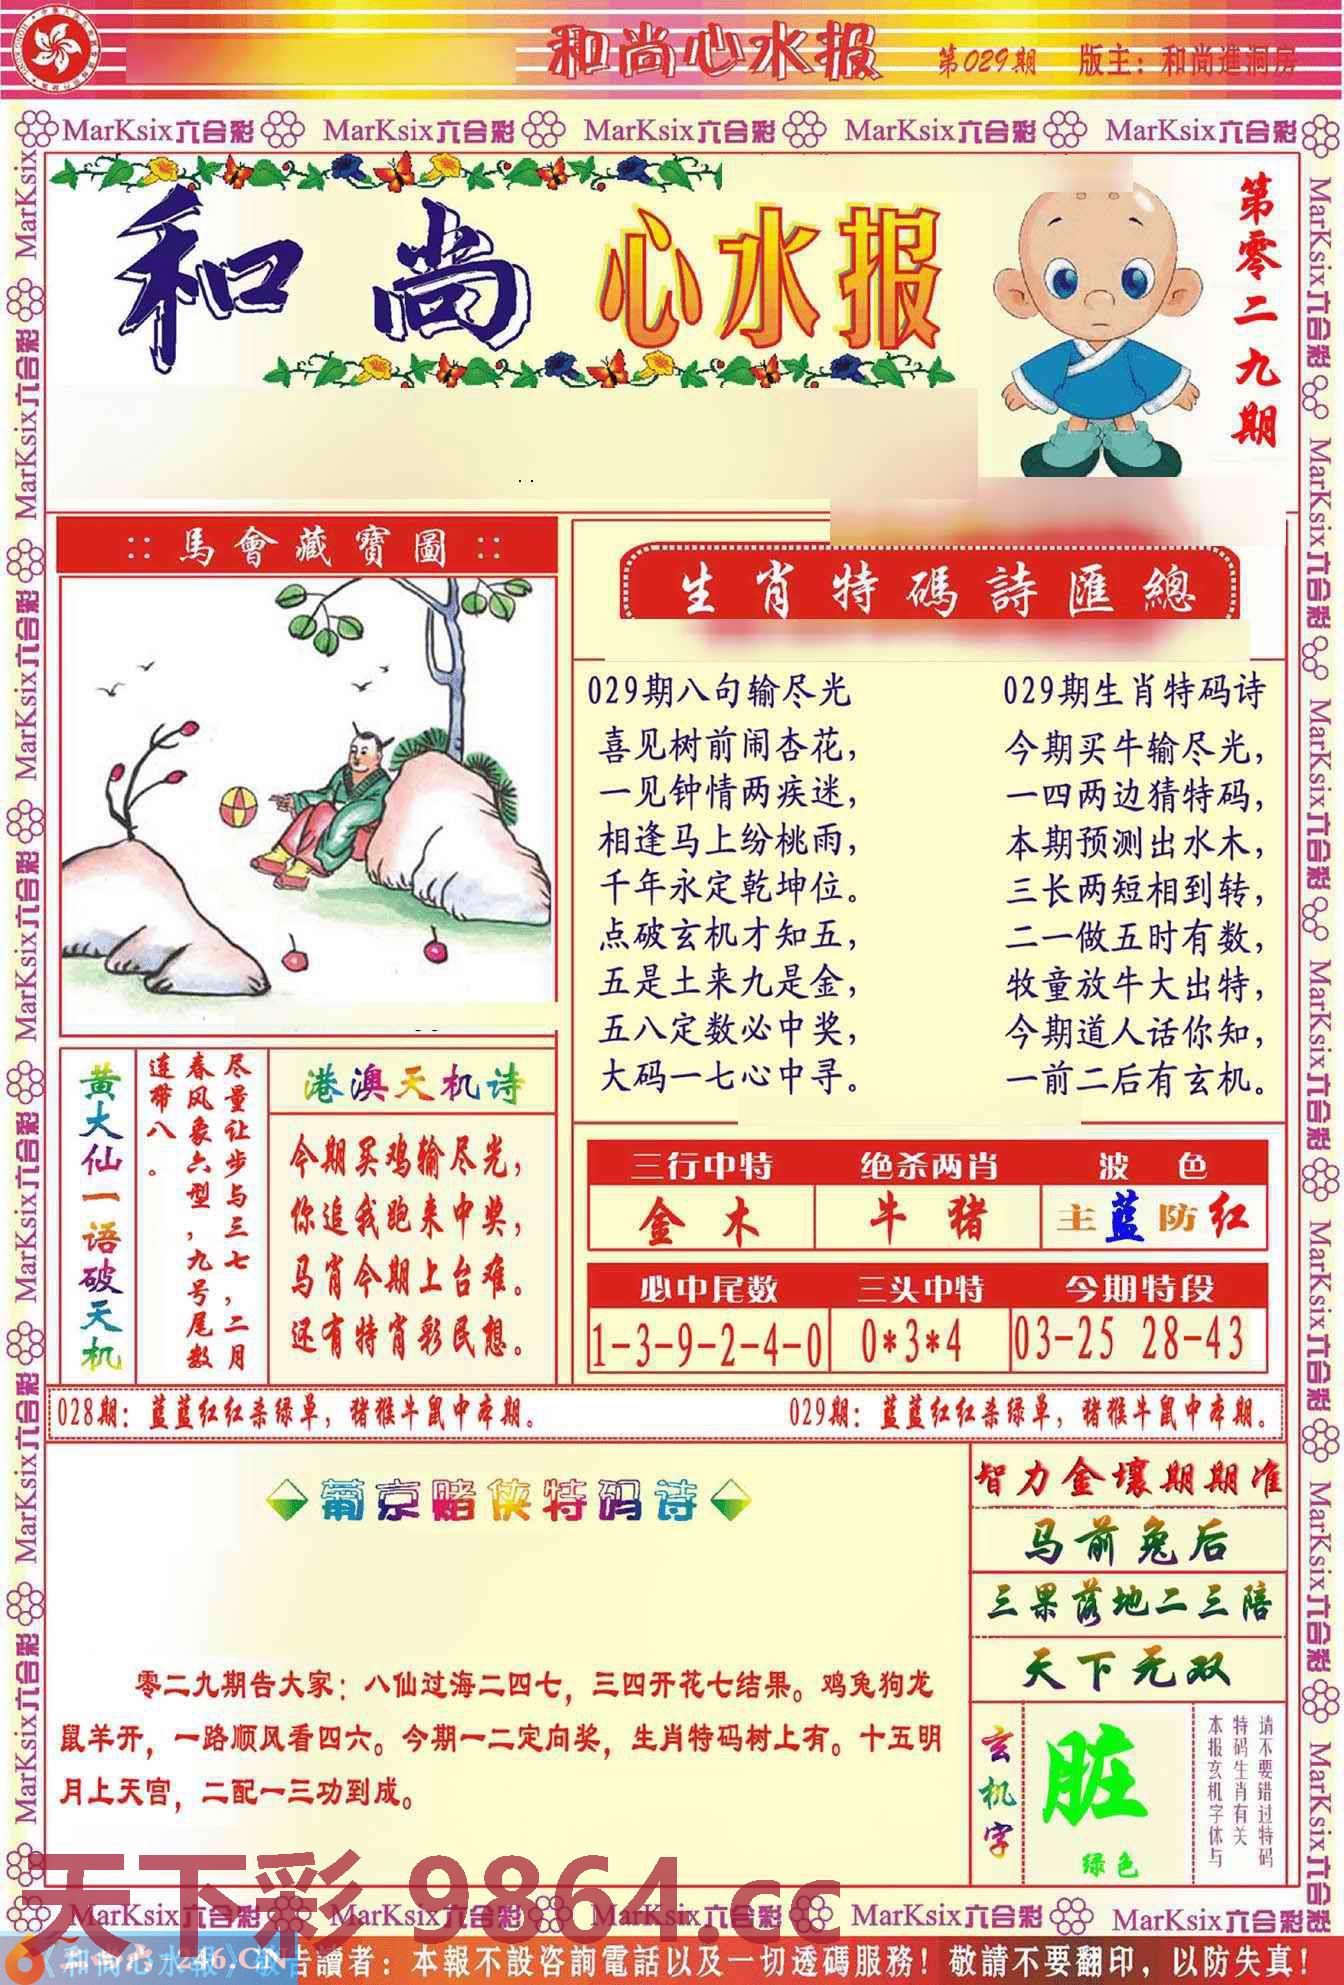 和尚心水报 第029期 版主：和尚進洞房
MarKsix六合彩 MarKsix六合彩 MarKsix六合彩 MarKsix六合彩 MarKsix六合彩
和尚心水报
第零二九期
::馬會藏寶圖::
生肖特碼詩匯總
029期八句输尽光
喜见树前闹杏花，
一见钟情两疾迷，
相逢马上纷桃雨，
千年永定乾坤位。
点破玄机才知五，
五是土来九是金，
五八定数必中奖，
大码一七心中寻。
029期生肖特码诗
今期买牛输尽光，
一四两边猜特码，
本期预测出水木，
三长两短相到转，
二一做五时有数，
牧童放牛大出特，
今期道人话你知，
一前二后有玄机。
黄大仙一语破天机
尽量让步与三七，二月
春风象六型，九号尾数
连带八。
港澳天机诗
今期买鸡输尽光，
你追我跑来中奖，
马肖今期上台难。
还有特肖彩民想。
三行中特 绝杀两肖 波色
金木 牛猪 主蓝防红
必中尾数 三头中特 今期特段
1-3-9-2-4-0 0*3*4 03-25 28-43
028期：蓝蓝红红杀绿单，猪猴牛鼠中本期。
029期：蓝蓝红红杀绿单，猪猴牛鼠中本期。
葡京赌侠特码诗
零二九期告大家：八仙过海二四七，三四开花七结果。鸡兔狗龙
鼠羊开，一路顺风看四六。今期一二定向奖，生肖特码树上有。十五明
月上天宫，二配一三功到成。
智力金壤期期准
马前兔后
三果落地二三陪
天下无双
玄机字
脏
绿色
请不要错过特码
特码生肖有关
本报玄机字体与
天下彩 9864.cc
MarKsix六合彩 MarKsix六合彩 MarKsix六合彩 MarKsix六合彩 MarKsix六合彩
246.CN
《和尚心水報》敬告讀者：本報不設咨詢電話以及一切透碼服務！敬請不要翻印，以防失真！